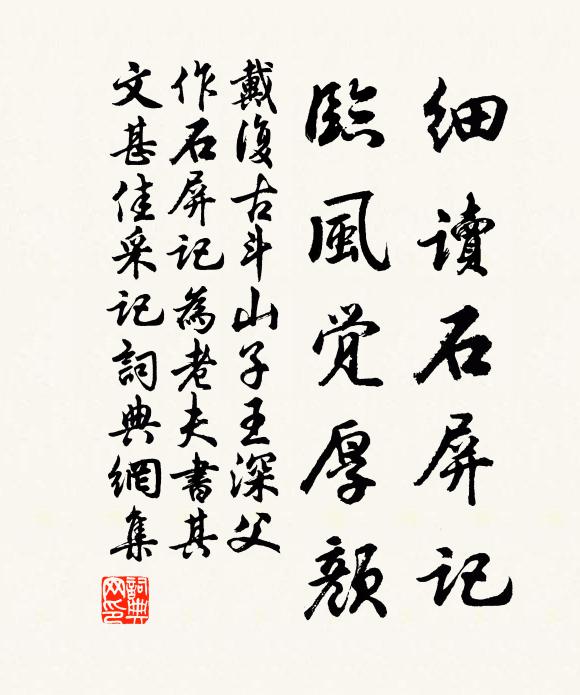 細讀石屏記
臨風覚厚顏
戴復古斗山子王深父
作石屏記為老夫書其
文甚佳采記詞典網集
詞典
网印